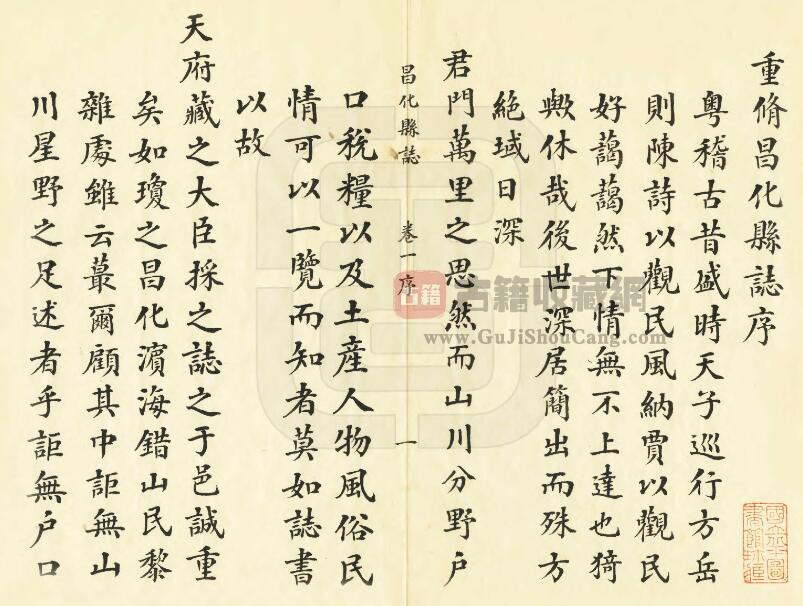 重脩昌化縣誌序
粤稽古昔盛時天子巡行方岳
則陳詩以觀民風納賈以觀民
好藹藹然下情無不上達也猗
歟休哉後世深居簡出而殊方
絶域日深
君門萬里之思然而山川分野户
昌化縣誌 卷一序 一
口稅糧以及土産人物風俗民
情可以一覽而知者莫如誌書
以故
天府藏之大臣採之誌之于邑誠重
矣如瓊之昌化濱海錯山民黎
雜處雖云蕞爾顧其中詎無山
川星野之足述者乎詎無户口
古籍
古籍收藏網
www.GuJiShouCang.com